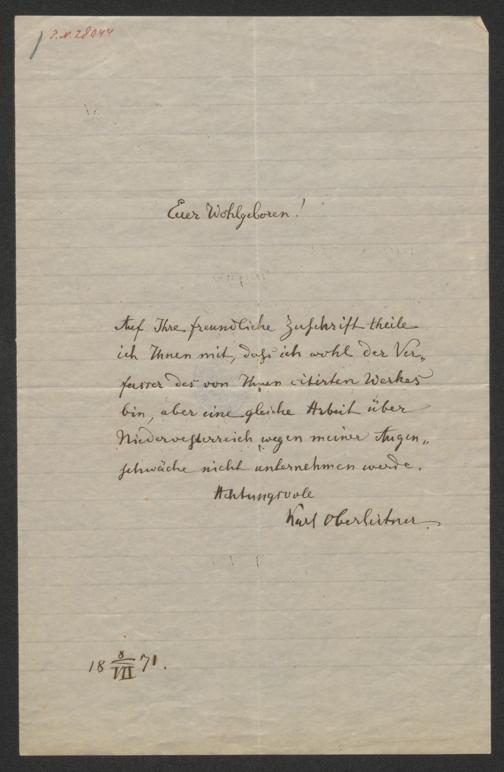 I.N. 28044
Euer Wohlgeboren!
Auf Ihre freundliche Zuschrift theile
ich Ihnen mit, daß ich wohl der Ver„
fasser des von Ihnen citirten Werkes
bin, aber eine gleiche Arbeit über
Niederoesterreich wegen meiner Augen„
schwäche nicht unternehmen werde.
Achtungsvole
Karl Oberleitner.
18 8/VII 71.